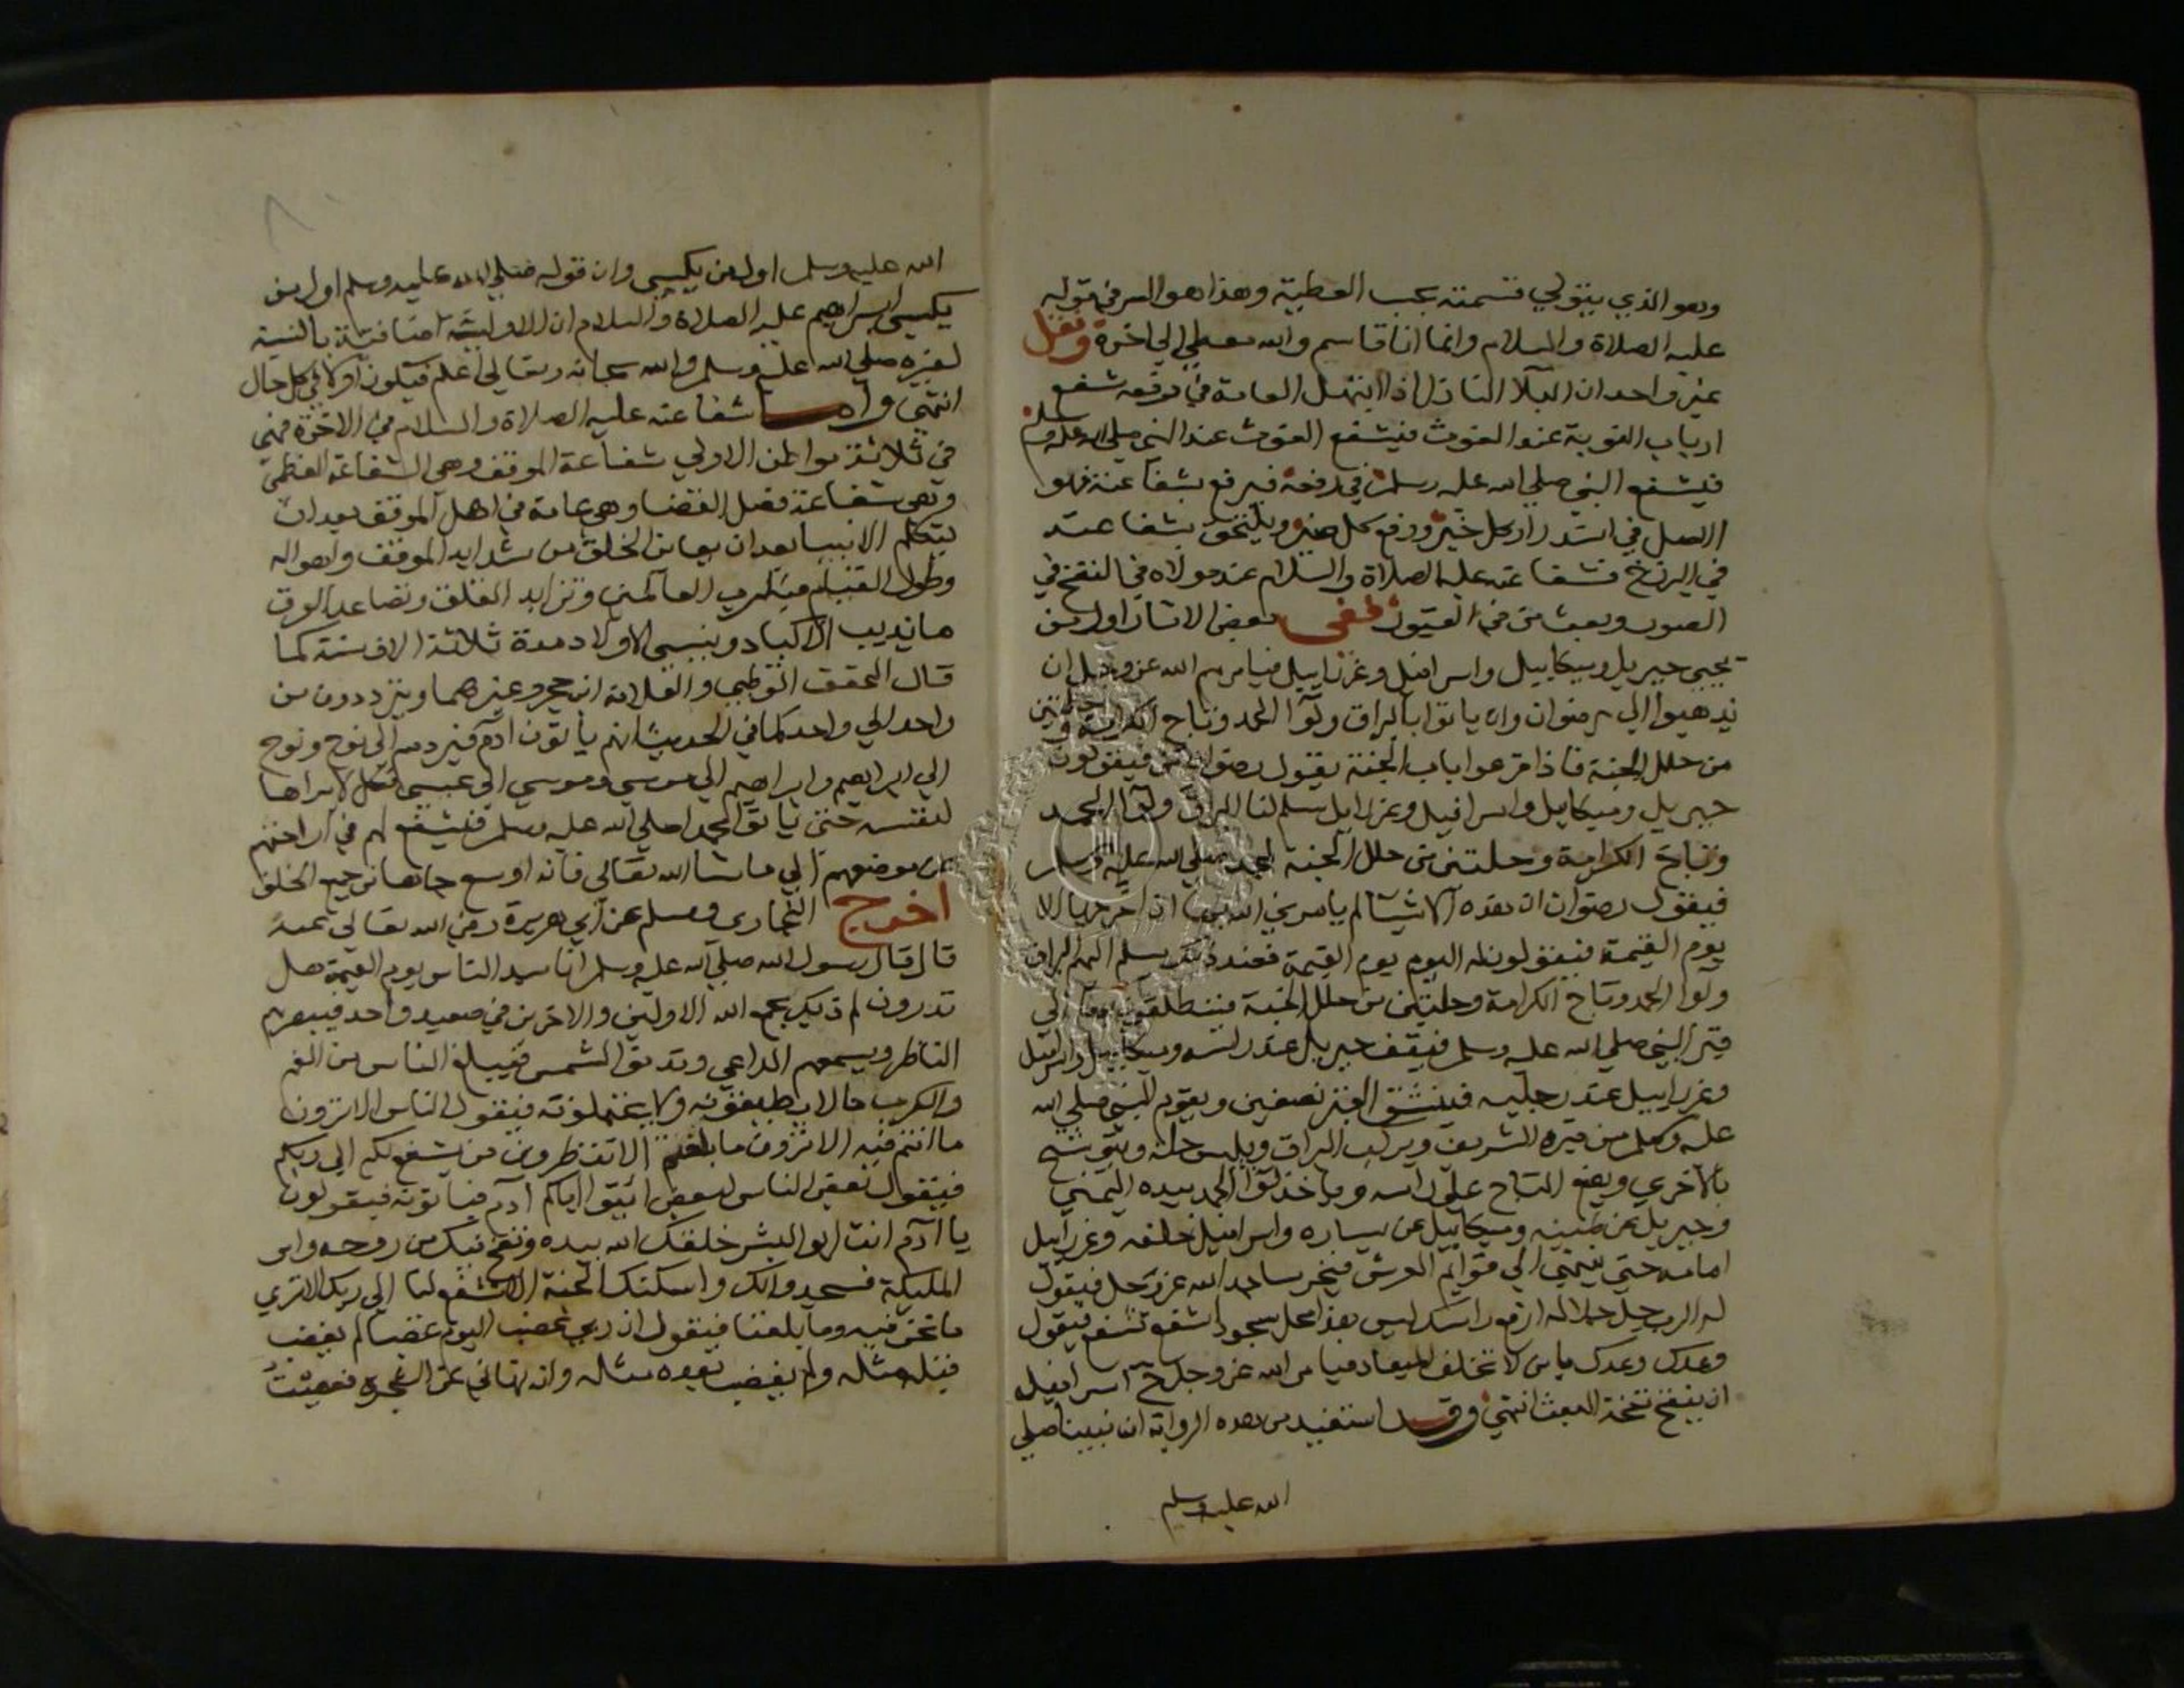 وهو الذي يتولي قسمته بحسب العطية وهذا هو السر في قوله
عليه الصلاة والسلام وانما انا قاسم والله معطي الي اخره ونقل
غير واحد ان البلا النازل اذا ابتهل العامة في رفعه شفع
ارباب النوبة عند الغوث فيشفع الغوث عند النبي صلي الله عليه وسلم
فيشفع النبي صلي الله عليه وسلم في رفعه فيرفع بشفاعته فهو
الاصل في استدرار كل خير ودفع كل ضير ويلتحق بشفاعته
في البرزخ شفاعته عليه الصلاة والسلام عند مولاه في النفخ في
الصور وبعث من في القبور ففي بعض الاثار اول من
يحيي جبريل وميكاييل واسرافيل وعزراييل فيامرهم الله عز وجل ان
يذهبوا الي رضوان وان ياتوا بالبراق ولوا الحمد وتاج الكرامة وحلتين
من حلل الجنة فاذا قرعوا باب الجنة يقول رضوان من فيقولون
جبريل وميكاييل واسرافيل وعزراييل سلم لنا البراق ولوا الحمد
وتاج الكرامة وحلتين من حلل الجنة لمحمد صلي الله عليه وسلم
فيقول رضوان ان هذه الاشيا لم يامرني الله بي ان اخرجها الا
يوم القيمة فيقولون له اليوم يوم القيمة فعند ذلك يسلم اليهم البراق
ولوا الحمد وتاج الكرامة وحلتين من حلل الجنة فينطلقون بها الي
قبر النبي صلي الله عليه وسلم فيقف جبريل عند راسه وميكاييل واسرافيل
وعزراييل عند رجليه فينشق القبر نصفين ويقوم النبي صلي الله
عليه وسلم من قبره الشريف ويركب البراق ويلبس حلة ويتوشح
بالاخري ويضع التاج علي راسه وياخذ لوا الحمد بيده اليمني
وجبريل عن يمينه وميكاييل عن يساره واسرافيل خلفه وعزراييل
امامه حتي ينتهي الي قوايم العرش فيخر ساجدا لله عز وجل فيقول
له الرب جل جلاله ارفع راسك ليس هذا محل سجود اشفع تشفع فيقول
وعدك وعدك يا من لا تخلف الميعاد فيامر الله عز وجل اسرافيل
ان ينفخ نفخة البعث انتهي وقد استفيد من هذه الرواية ان نبينا صلي
الله عليه وسلم
الله عليه وسلم اول من يكسي وان قوله صلي الله عليه وسلم اول من
يكسي ابراهيم عليه الصلاة والسلام ان الاولية اضافية بالنسبة
لغيره صلي الله عليه وسلم والله سبحانه وتعالي اعلم فيكون اولا في كل حال
انتهي واما شفاعته عليه الصلاة والسلام في الاخرة فهي
في ثلاثة مواطن الاولي شفاعة الموقف وهي الشفاعة العظمي
وهي شفاعة فصل القضا وهي عامة في اهل الموقف بعد ان
يتكلم الانبيا بعد ان يعاين الخلق من شدايد الموقف واهواله
وطول القيام لرب العالمين وتزايد القلق وتصاعد العرق
ما يذيب الاكباد وينسي الاولاد مدة ثلاثة الاف سنة كما
قال المحقق القرطبي والعلامة ابن حجر وغيرهما ويترددون من
واحد الي واحد كما في الحديث انهم ياتون ادم فيردهم الي نوح ونوح
الي ابراهيم وابراهيم الي موسي وموسي الي عيسي فكل لا يراها
لنفسه حتي ياتوا محمدا صلي الله عليه وسلم فيشفع لهم في اراحتهم
من موضعهم الي ما شا الله تعالي فانه اوسع جاها من جميع الخلق
اخرج البخاري ومسلم عن ابي هريرة رضي الله تعالي عنه
قال قال رسول الله صلي الله عليه وسلم انا سيد الناس يوم القيمة هل
تدرون لم ذيك يجمع الله الاولين والاخرين في صعيد واحد فيبصرهم
الناظر ويسمعهم الداعي وتدنو الشمس فيبلغ الناس من الغم
والكرب ما لا يطيقونه ولا يحتملونه فيقول الناس الا ترون
ما انتم فيه الا ترون ما بلغكم الا تنظرون من يشفع لكم الي ربكم
فيقول بعض الناس لبعض ايتوا اباكم ادم فياتونه فيقولون
يا ادم انت ابو البشر خلقك الله بيده ونفخ فيك من روحه وامر
المليكة فسجدوا لك واسكنك الجنة الا تشفع لنا الي ربك الا تري
ما نحن فيه وما بلغنا فيقول ان ربي غضب اليوم غضبا لم يغضب
قبله مثله ولم يغضب بعده مثله وانه نهاني عن الشجرة فعصيت